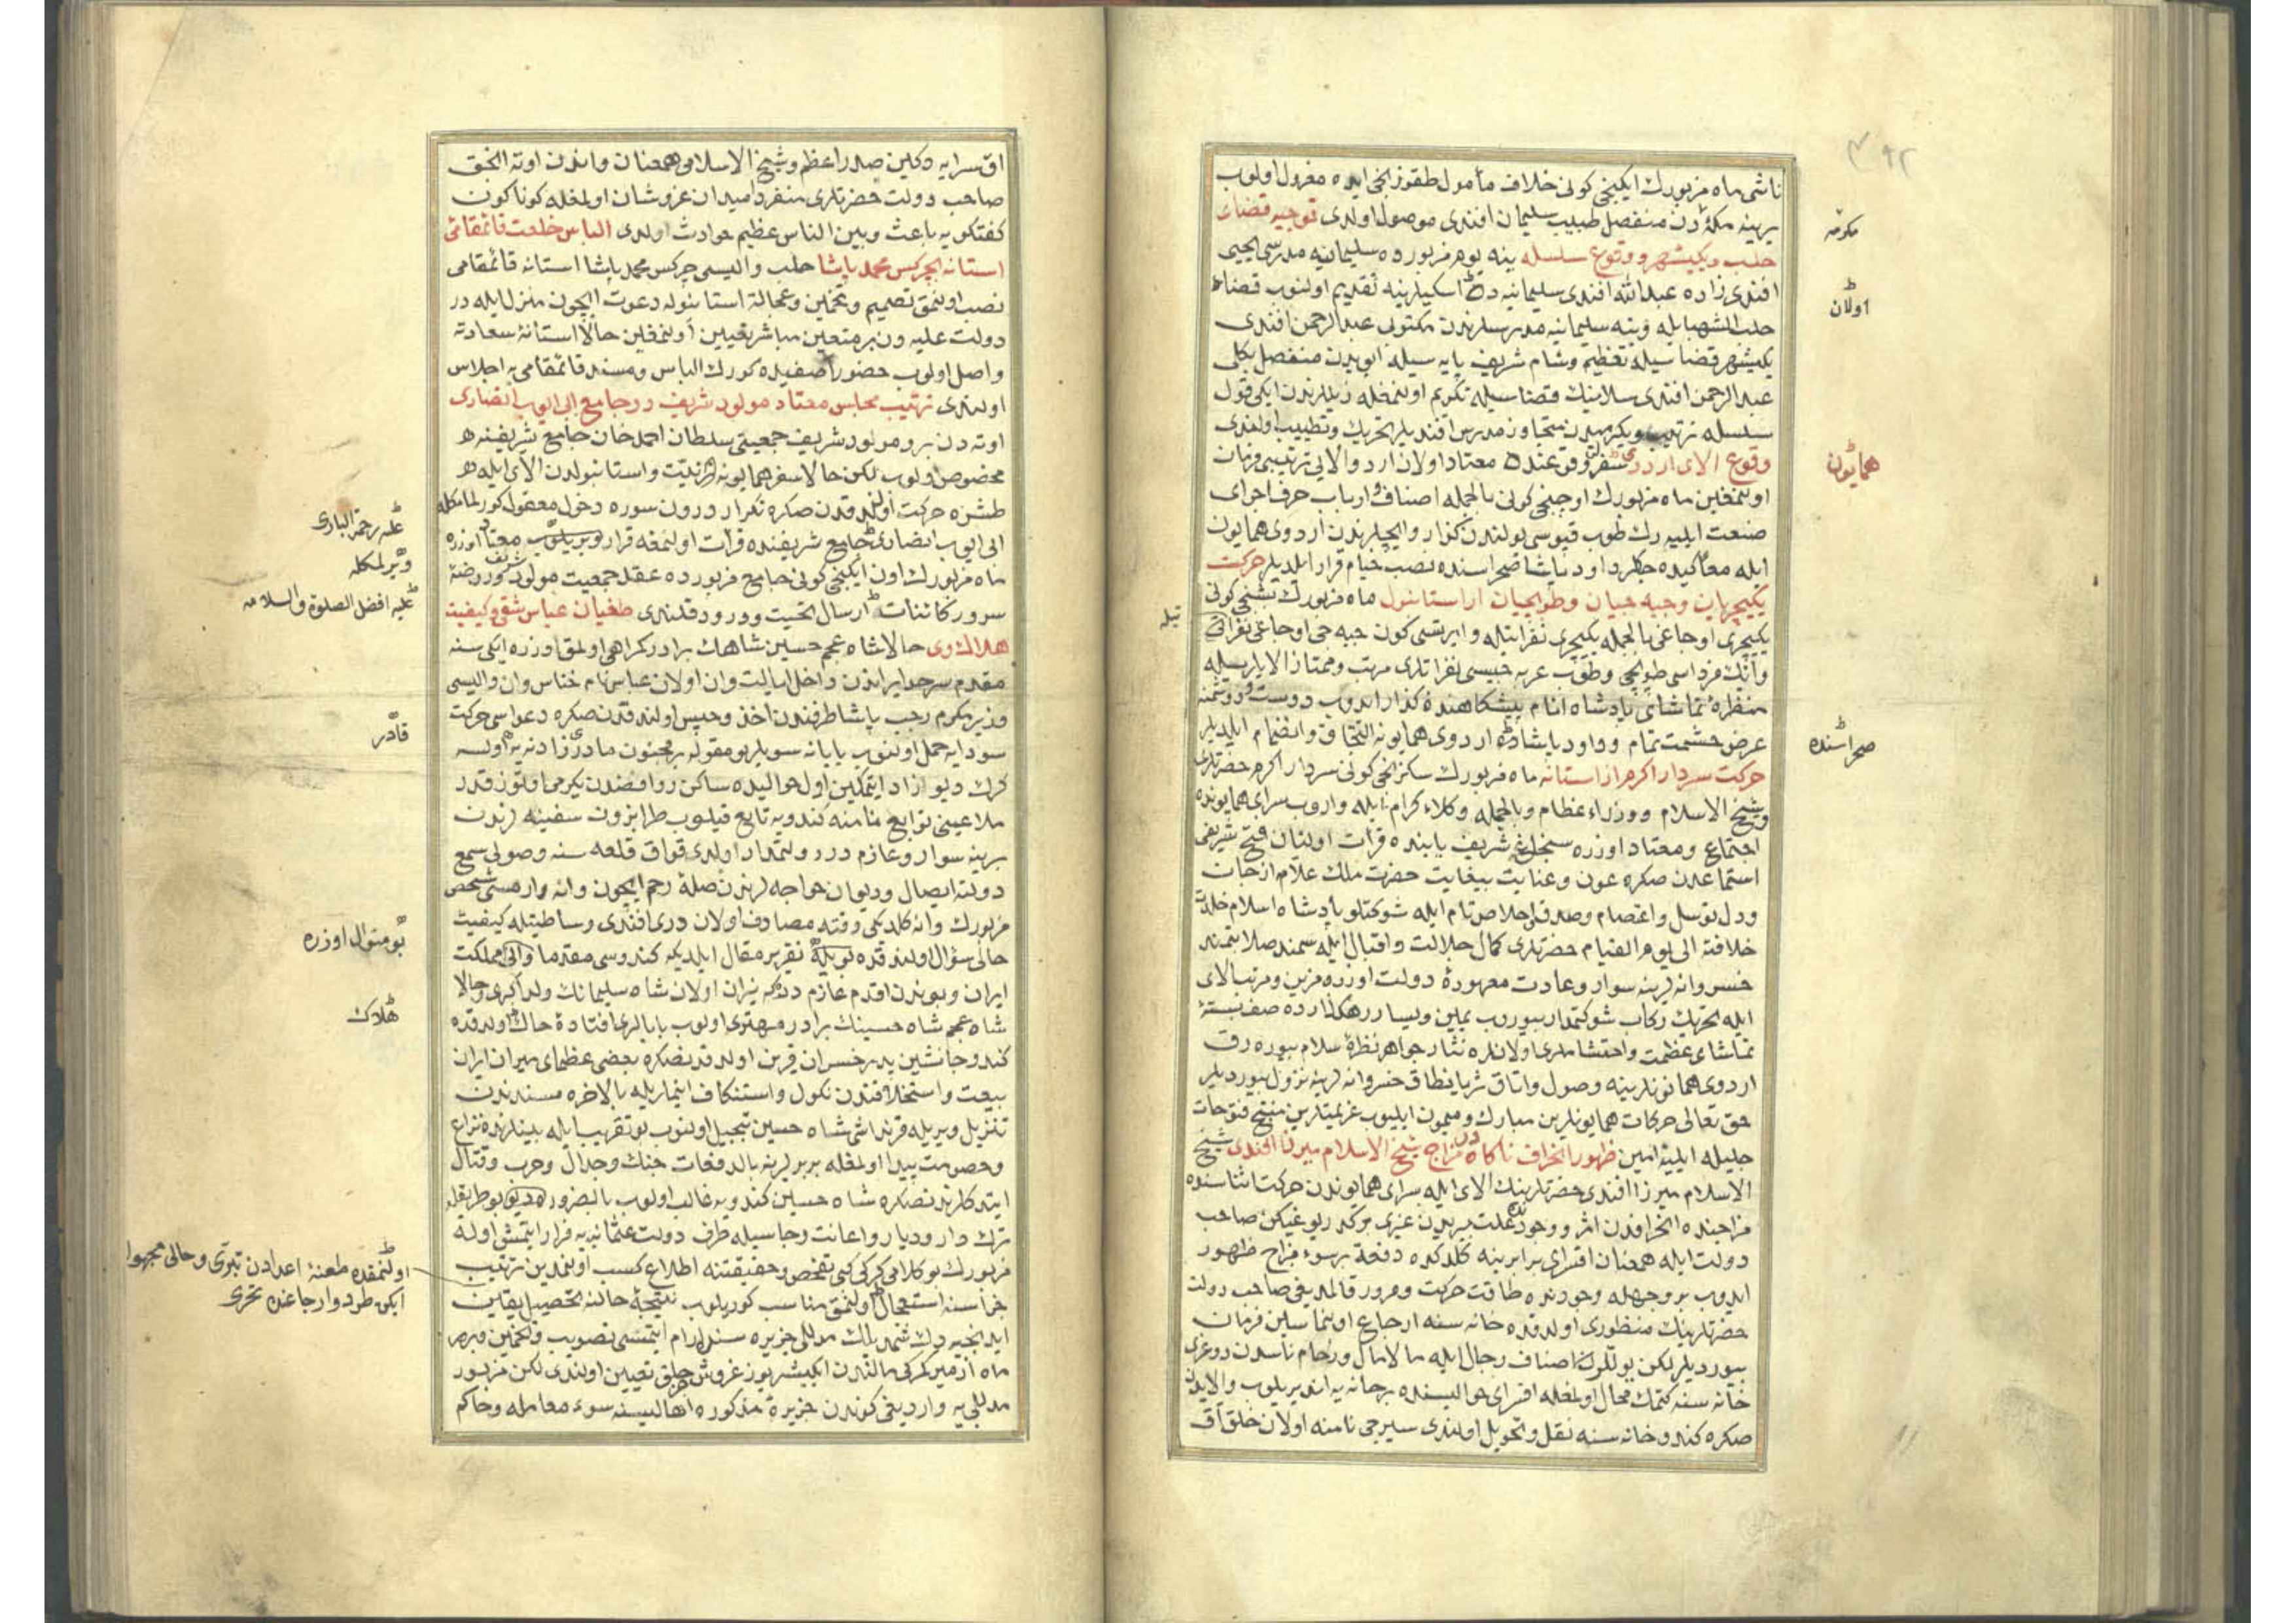 ٣٩٢
ناشی ماه مزبورك ایکینجی کونی خلاف مأمول طقوزنجی ایده معزول اولوب
یرینه مکهٔ دن منفصل طبیب سلیمان افندی موصول اولدی توجیه قضای
حلب ویکیشهر ووقوع سلسله ینه یوم مزبورده سلیمانیه مدرسی یحیی
افندی زاده عبدالله افندی سلیمانیه ده اسکیلرینه تقدیم اولنوب قضاء
حلب الشهبا ایله وینه سلیمانیه مدرسلرندن مکتوبی عبدالرحمن افندی
یکیشهر قضاسیله تعظیم وشام شریف پایه سیله ایوبدن منفصل بکلی
عبدالرحمن افندی سلانیك قضاسیله تکریم اولنمغله ذیللرندن ایکی قول
سلسله ترتیب ویکرمیدن متجاوز مدرس افندیلر تحریك وتطییب اولندی
وقوع الای اردوی سفر وقوعنده معتاد اولان اردو الایی ترتیبی فرمان
اولنمغین ماه مزبورك اوچنجی کونی بالجمله اصناف وارباب حرف اجرای
صنعت ایلیه رك طوپ قپوسی یولندن کذار وایچلرندن اردوی همایون
ایله معا کیده جکلر داود پاشا صحراسنده نصب خیام قرار ایلدیلر حرکت
یکیچریان وجبه جیان وطوپجیان از استانبول ماه مزبورك بشنجی کونی
یکیچری اوجاغی بالجمله یکیچری نفراتیله وایرتسی کون جبه جی اوجاغی نفراتی
وانك فرداسی طوپجی وطوپ عربه جیسی نفراتلری مرتب وممتاز الایلریله
منظرهٔ تماشای پادشاه انام پیشکاهنده کذار ایدوب دوست ودشمنه
عرض حشمت تمام وداود پاشاده اردوی همایونه التحاق وانضمام ایلدیلر
حرکت سردار اکرم از استانه ماه مزبورك سکزنجی کونی سردار اکرم حضرتلری
وشیخ الاسلام ووزراء عظام وبالجمله وکلاء کرام ایله واروب سرای همایونده
اجتماع ومعتاد اوزره سنجاغ شریف پاینده قرائت اولنان فتح شریفی
استماعدن صکره عون وعنایت بیغایت حضرت ملك علام از جان
ودل توسل واعتصام وصدق اخلاص تام ایله شوکتلو پادشاه اسلام خلدت
خلافته الی یوم القیام حضرتلری کمال جلالت واقبال ایله سمند صلابتمند
خسروانه لرینه سوار وعادت معهودهٔ دولت اوزره مزین ومرتب الای
ایله تحریك رکاب شوکتمدار بیوروب یمین ویسار رهکذارده صف بستهٔ
تماشای عظمت واحتشاملری اولانلره نثار جواهر نظرهٔ سلام بیوره رق
اردوی همایونلرینه وصول واتاق ثریا نطاق خسروانه لرینه نزول بیوردیلر
حق تعالی حرکات همایونلرین مبارك ومیمون ایلیوب عزیمتلرین منتج فتوحات
جلیله ایلیه امین ظهور انحراف ناکاه در مزاج شیخ الاسلام میرزا افندی شیخ
الاسلام میرزا افندی حضرتلرینك الای ایله سرای همایوندن حرکت اثناسنده
مزاجنده انحرافدن اثر ووجودنده علت پیریدن غیری مؤکدر یوغیکن صاحب
دولت ایله همعنان اقسرای برابرینه کلدکده دفعة بر سوء مزاج ظهور
ایدوب بر وجهله وجودنده طاقت حرکت ومرور قالمدیغی صاحب دولت
حضرتلرینك منظوری اولدقده خانه سنه ارجاع اولنماسین فرمان
بیوردیلر لکن یوللرك اصناف رجال ایله مالامال وزحام ناسدن دوغری
خانه سنه کتمك محال اولمغله اقسرای حوالیسنده بر خانه یه ایندیریلوب والایدن
صکره کندو خانه سنه نقل وتحویل اولندی سیرجی نامنه اولان خلق آق
مکرمه
اولان
همایون
یله
صحراسنده
اق سرایه دکلین صدر اعظم وشیخ الاسلامی همعنان واندن اوته انجق
صاحب دولت حضرتلری منفردا میدان عز وشان اولمغله کوناکون
کفتکویه باعث وبین الناس عظیم حوادث اولدی الباس خلعت قائمقامئ
استانه بچرکس محمد پاشا حلب والیسی چرکس محمد پاشا استانه قائمقامی
نصب اولنمق تصمیم وتخمین وعجالة استانبوله دعوت ایچون منزل ایله در
دولت علیه دن بر متعین مباشر تعیین اولنمغین حالا استانهٔ سعادته
واصل اولوب حضور اصفیده کورك الباس ومسند قائمقامی یه اجلاس
اولندی ترتیب مجلس معتاد مولود شریف در جامع ابی ایوب انصاری
اوته دن برو مولود شریف جمعیتی سلطان احمد خان جامع شریفنه
مخصوص اولوب لکن حالا سفر همایونه عزیمت واستانبولدن الای ایله
طشره حرکت اولندقدن صکره تکرار درون سوره دخول معقول کورلمامکله
ابی ایوب انصاری جامع شریفنده قرائت اولنمغه قرار ویریلوب معتاد اوزره
ماه مزبورك اون ایکینجی کونی جامع مزبورده عقد جمعیت مولود شریف وروضهٔ
سرور کائنات ارسال تحیت ودرود قلندی طغیان عباس شقی وکیفیت
هلاك وی حالا شاه عجم حسین شاهك برادر کمراهی اولمق اوزره ایکی سنه
مقدم سرحد ایراندن داخل ایالت وان اولان عباس نام خناس وان والیسی
وزیر مکرم رجب پاشا طرفندن اخذ وحبس اولندقدن صکره دعواسی حرکت
سودایه حمل اولنوب یابانه سویلر بو مقوله بر مجنون مادرزاد نه یه اولسه
کرك دیو ازاد ایتمکین اول حوالیده ساکن روافضدن یکرمی اوتوز قدر
ملاعینی توابع نامنه کندویه تابع قیلوب طرابزون سفینه لرندن
برینه سوار وعازم در دولتمدار اولدی قواق قلعه سنه وصولی سمع
دولته ایصال ودیوان خواجه لرندن صلهٔ رحم ایچون وانه وارمشی شخص
مزبورك وانه کلدیکی وقته مصادف اولان دری افندی وساطتیله کیفیت
حالی سؤال اولندقده بویله تقریر مقال ایلدیکه کندوسی مقدما والی مملکت
ایران وبوندن اقدم عازم درکه نیران اولان شاه سلیمانك ولد اکبری وحالا
شاه عجم شاه حسینك برادر مهتری اولوب بابالری افتادهٔ خاك اولدقده
کندو جانشین پدر خسران قرین اولدقدنصکره بعضی عظمای میران ایران
بیعت واستخلافندن نکول واستنکاف ایتماریله بالاخره مسنددن
تنزیل ویریله قرنداشی شاه حسین تبجیل اولنوب بو تقریب ایله بینلرنده نزاع
وخصومت پیدا اولمغله بربرلرینه بالدفعات جنك وجدال وحرب وقتال
ایتدکلرندنصکره شاه حسین کندویه غالب اولوب بالضرور بو طریقله
ترك دار ودیار واعانت رجاسیله طرف دولت عثمانیه یه فرار ایتمش اوله
مزبورك بو کلامی کرکی کبی تفحص وحقیقتنه اطلاع کسب اولنمدین ترتیب
جزاسنه استعجال اولنمق مناسب کوریلوب نتیجهٔ حالنه تحصیل یقین
ایدنجیه دك شمدیلك مدللی جزیره سنده ارام ایتمسی تصویب وتخمین وبهر
ماه ازمیر کمرکی مالندن ایکیشر یوز غروش خرجلق تعیین اولندی لکن مزبور
مدللی یه واردیغی کوندن جزیرهٔ مذکوره اهالیسنه سوء معامله وحاکم
علیه رحمة الباری
ویرلمکله
علیه افضل الصلوة والسلامه
قادر
بو منوال اوزره
هلاك
اولنمقده طعنهٔ اعدادن تبرّی وحالی مجهول
ایکن طرد وارجاعنده تحری